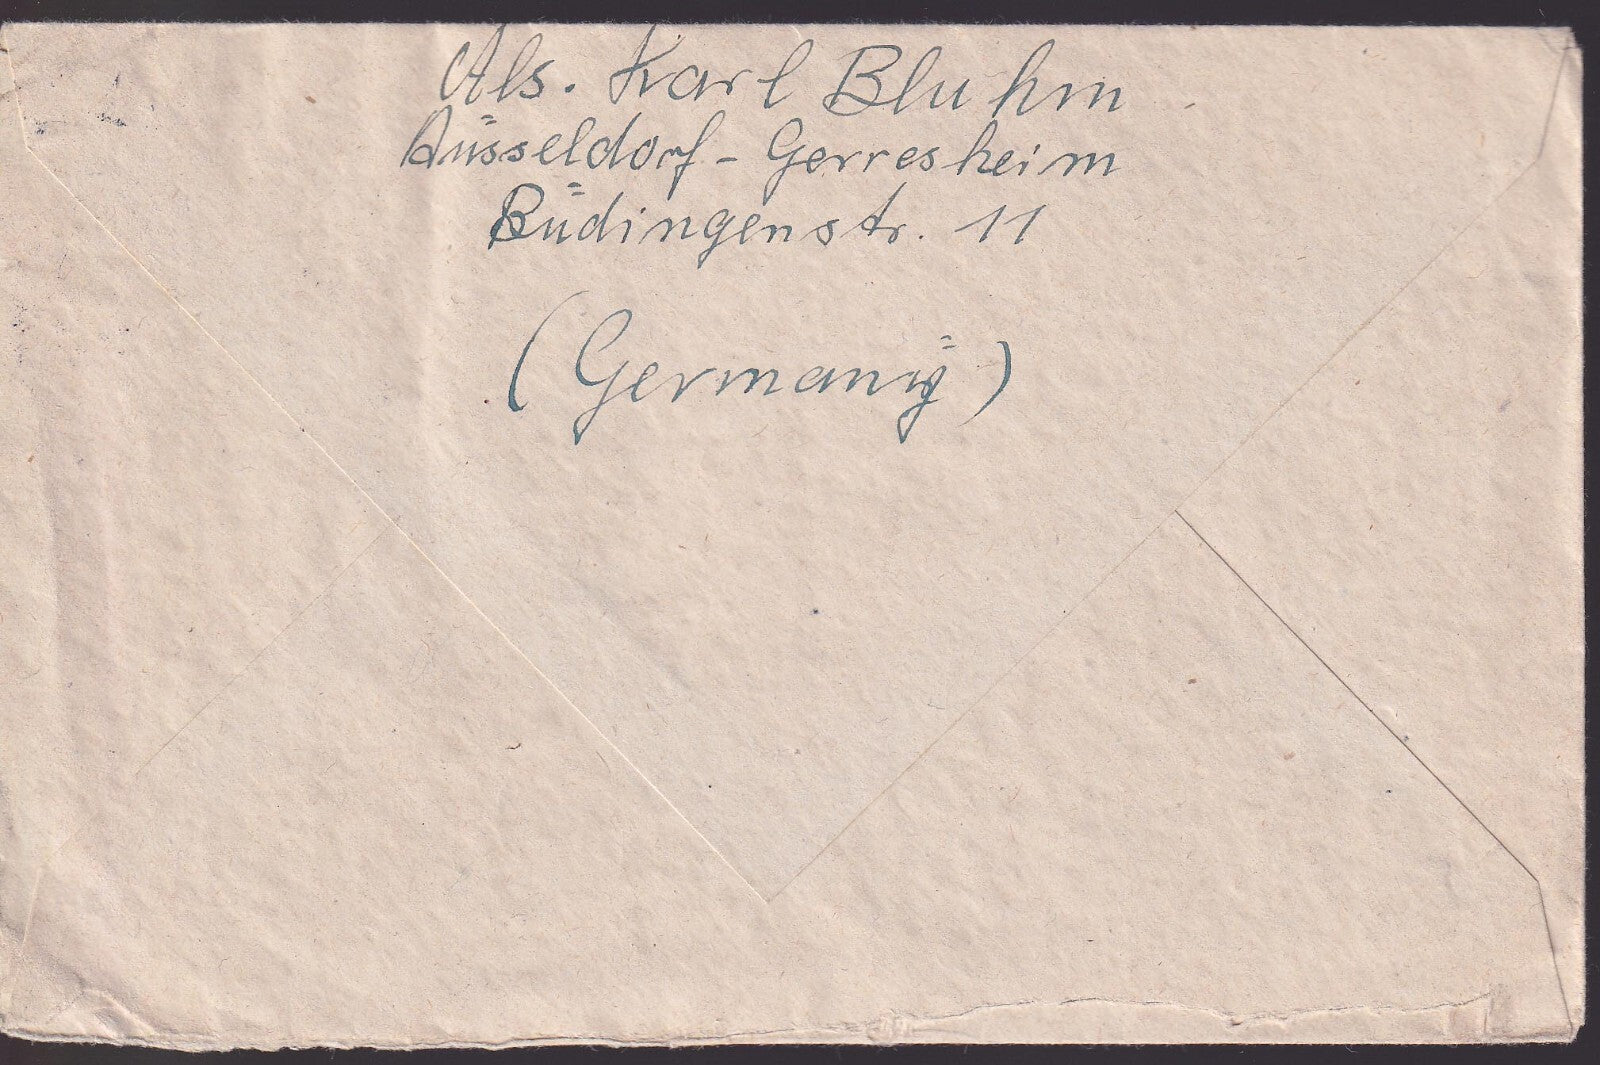 Abs. Karl Bluhm
Düsseldorf - Gerresheim
Büdingenstr. 11
(Germanÿ)